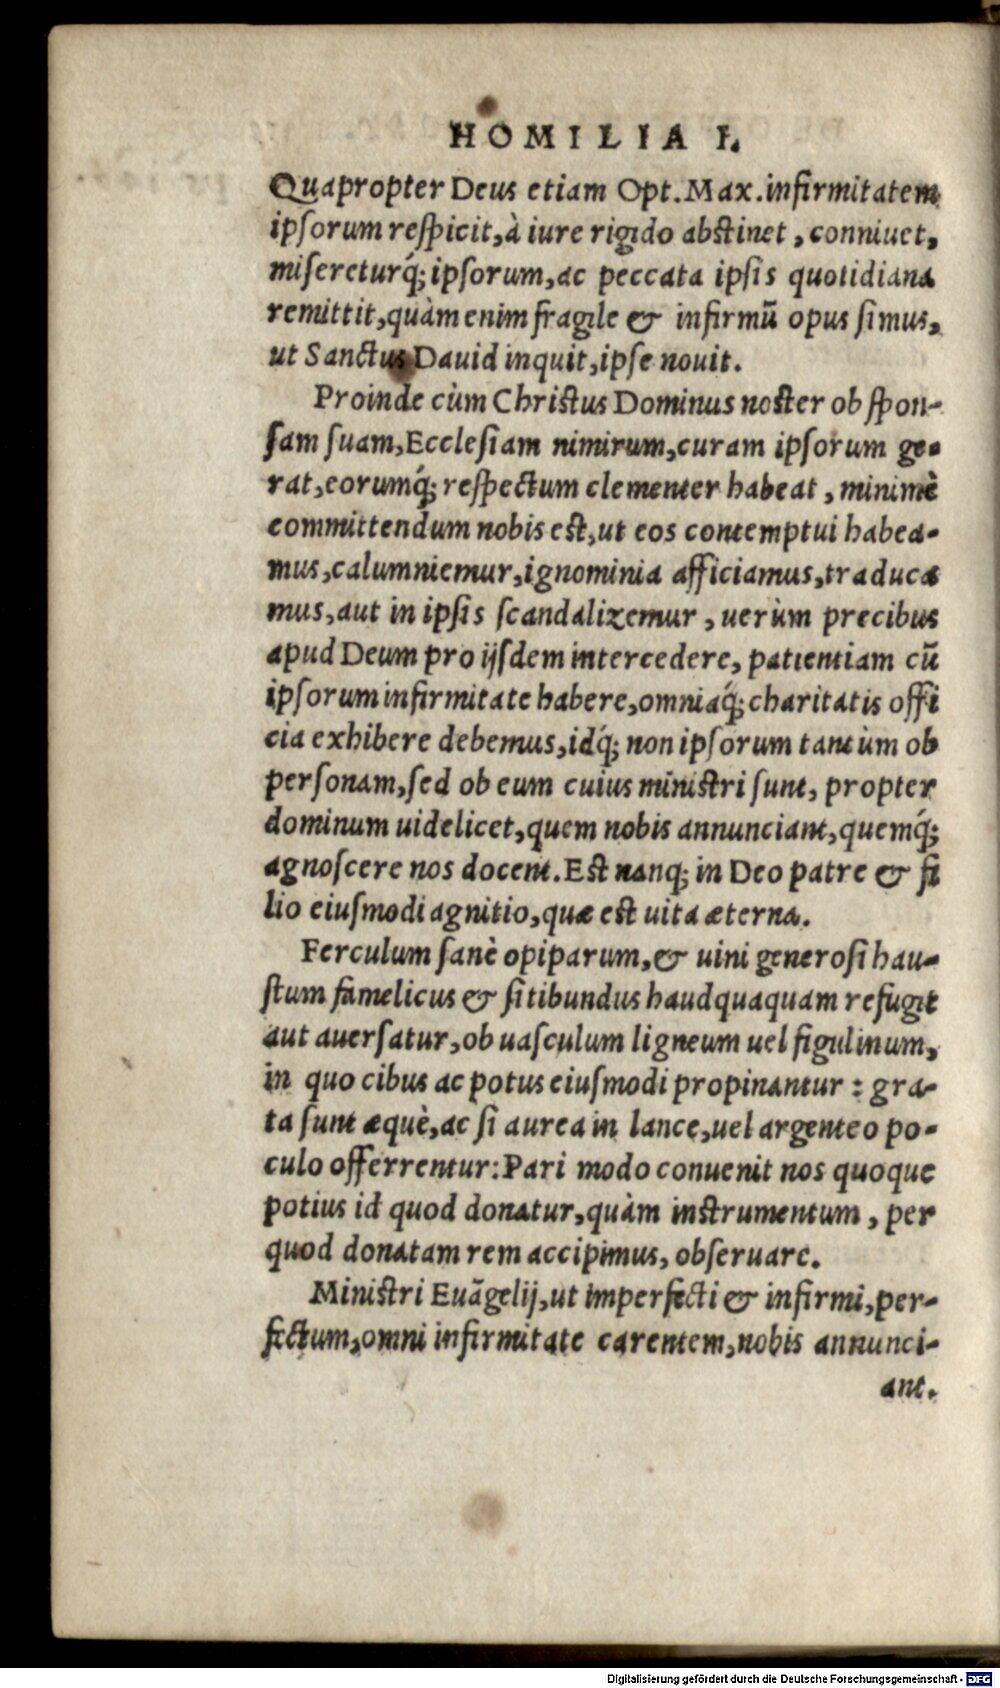 HOMILIA I.
Quapropter Deus etiam Opt. Max. infirmitatem
ipſorum reſpicit, à iure rigido abſtinet, conniuet,
miſereturq́; ipſorum, ac peccata ipſis quotidiana
remittit, quàm enim fragile & infirmū opus ſimus,
ut Sanctus Dauid inquit, ipſe nouit.
Proinde cùm Chriſtus Dominus noſter ob ſpon-
ſam ſuam, Eccleſiam nimirum, curam ipſorum ge-
rat, eorumq́; reſpectum clementer habeat, minimè
committendum nobis eſt, ut eos contemptui habea-
mus, calumniemur, ignominia afficiamus, traduca
mus, aut in ipſis ſcandalizemur, uerùm precibus
apud Deum pro ijſdem intercedere, patientiam cū
ipſorum infirmitate habere, omniaq́; charitatis offi
cia exhibere debemus, idq́; non ipſorum tantùm ob
perſonam, ſed ob eum cuius miniſtri ſunt, propter
dominum uidelicet, quem nobis annunciant, quemq́;
agnoſcere nos docent. Eſt nanq; in Deo patre & fi
lio eiuſmodi agnitio, quæ eſt uita æterna.
Ferculum ſanè opiparum, & uini generoſi hau-
ſtum famelicus & ſitibundus haudquaquam refugit
aut auerſatur, ob uaſculum ligneum uel figulinum,
in quo cibus ac potus eiuſmodi propinantur: gra-
ta ſunt æquè, ac ſi aurea in lance, uel argenteo po-
culo offerrentur: Pari modo conuenit nos quoque
potius id quod donatur, quàm inſtrumentum, per
quod donatam rem accipimus, obſeruare.
Miniſtri Euãgelij, ut imperfecti & infirmi, per-
fectum, omni infirmitate carentem, nobis annunci-
ant.
Digitalisierung gefördert durch die Deutsche Forschungsgemeinschaft - DFG